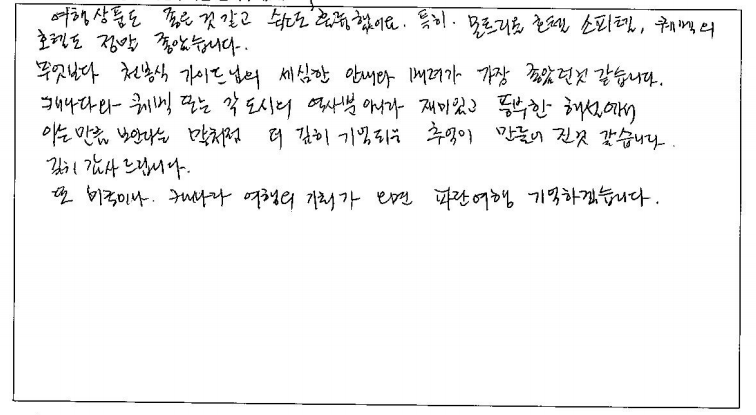 여행상품도 좋은 것 같고 숙소도 훌륭했어요. 특히. 몬트리올 호텔 소피텔, 퀘벡의
호텔도 정말 좋았습니다.
무엇보다 천봉식 가이드님의 세심한 안내와 배려가 가장 좋았던것 같습니다.
캐나다와 퀘벡 또는 각 도시의 역사뿐아니라 재미있고 풍부한 해설에서
아는만큼 보인다는 말처럼 더 깊히 기억되는 추억이 만들어 진것 같습니다.
깊히 감사드립니다.
또 미국이나. 캐나다 여행의 기회가 되면 파란여행 기억하겠습니다.